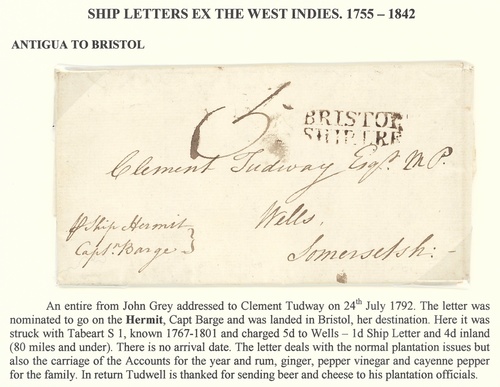 SHIP LETTERS EX THE WEST INDIES. 1755 – 1842
ANTIGUA TO BRISTOL
5
BRISTOL
SHIP LRE
Clement Tudway Esqr. M P.
Wells,
Somersetsh: -
p Ship Hermit
Captn. Barge
An entire from John Grey addressed to Clement Tudway on 24th July 1792. The letter was
nominated to go on the Hermit, Capt Barge and was landed in Bristol, her destination. Here it was
struck with Tabeart S 1, known 1767-1801 and charged 5d to Wells – 1d Ship Letter and 4d inland
(80 miles and under). There is no arrival date. The letter deals with the normal plantation issues but
also the carriage of the Accounts for the year and rum, ginger, pepper vinegar and cayenne pepper
for the family. In return Tudwell is thanked for sending beer and cheese to his plantation officials.